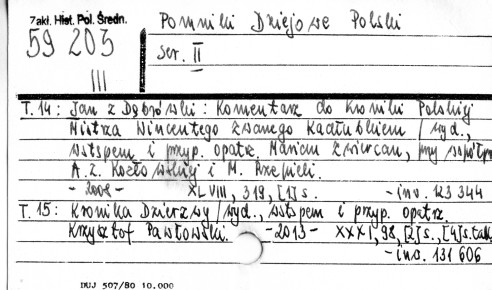 Zakł. Hist. Pol. Średn.
59 203
III
Pomniki Dziejowe Polski
Ser. II
T. 14: Jan z Dąbrówki: Komentarz do Kroniki Polskiej
Mistrza Wincentego zwanego Kadłubkiem / wyd.,
wstępem i przyp. opatrz. Marian Zwiercan, przy współpr
A. Z. Kozłowskiej i M. Rzepieli.
- 2008 - XLVIII, 319, [1] s. - inw. 123 344
T. 15: Kronika Dzierzwy / wyd., wstępem i przyp. opatrz.
Krzysztof Pawłowski. - 2013 - XXXI, 98, [2] s., [4] s. tabl.
- inw. 131 606
DUJ 507/80 10.000